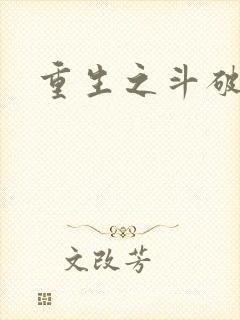 重生之斗破
文改芳